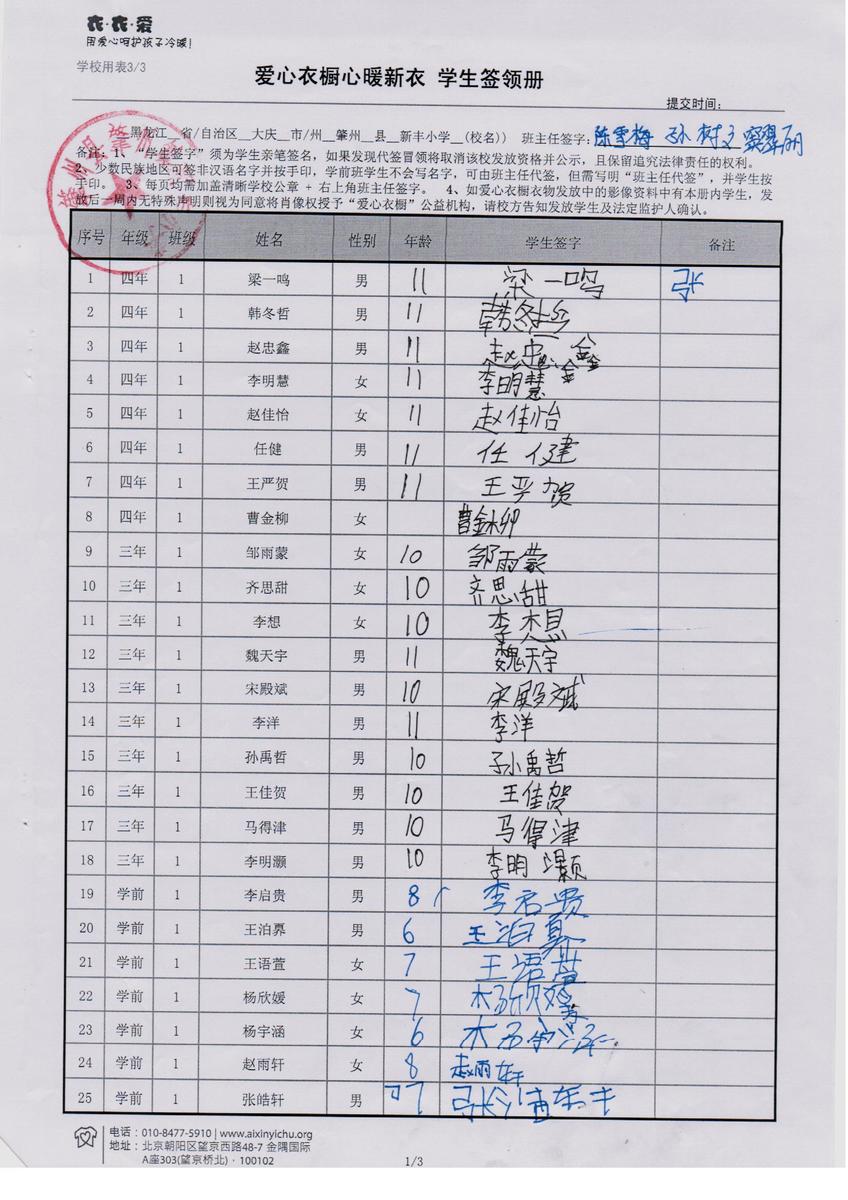 衣·衣·爱
用爱心呵护孩子冷暖!
学校用表3/3
爱心衣橱心暖新衣 学生签领册
提交时间:
黑龙江__省/自治区__大庆__市/州__肇州__县__新丰小学__(校名)) 班主任签字: 陈雪梅 孙树文
备注: 1、“学生签字”须为学生亲笔签名, 如果发现代签冒领将取消该校发放资格并公示, 且保留追究法律责任的权利。
2、少数民族地区可签非汉语名字并按手印, 学前班学生不会写名字, 可由班主任代签, 但需写明“班主任代签”, 并学生按
手印。 3、每页均需加盖清晰学校公章 + 右上角班主任签字。 4、如爱心衣橱衣物发放中的影像资料中有本册内学生, 发
放后一周内无特殊声明则视为同意将肖像权授予“爱心衣橱”公益机构, 请校方告知发放学生及法定监护人确认。
序号 年级 班级 姓名 性别 年龄 学生签字 备注
1 四年 1 梁一鸣 男 11 梁一鸣
2 四年 1 韩冬哲 男 11 韩冬哲
3 四年 1 赵忠鑫 男 11 赵忠鑫
4 四年 1 李明慧 女 11 李明慧
5 四年 1 赵佳怡 女 11 赵佳怡
6 四年 1 任健 男 11 任健
7 四年 1 王严贺 男 11 王严贺
8 四年 1 曹金柳 女 曹金柳
9 三年 1 邹雨蒙 女 10 邹雨蒙
10 三年 1 齐思甜 女 10 齐思甜
11 三年 1 李想 女 10 李想
12 三年 1 魏天宇 男 11 魏天宇
13 三年 1 宋殿斌 男 10 宋殿斌
14 三年 1 李洋 男 11 李洋
15 三年 1 孙禹哲 男 10 孙禹哲
16 三年 1 王佳贺 男 10 王佳贺
17 三年 1 马得津 男 10 马得津
18 三年 1 李明灏 男 10 李明灏
19 学前 1 李启贵 男 8 李启贵
20 学前 1 王泊奡 男 6 王泊
21 学前 1 王语萱 女 7 王语萱
22 学前 1 杨欣媛 女 7 杨欣媛
23 学前 1 杨宇涵 女 6 杨宇涵
24 学前 1 赵雨轩 女 8 赵雨轩
25 学前 1 张皓轩 男 7 张皓轩
电话: 010-8477-5910 | www.aixinyichu.org
地址: 北京朝阳区望京西路48-7 金隅国际
A座303(望京桥北) · 100102
1/3